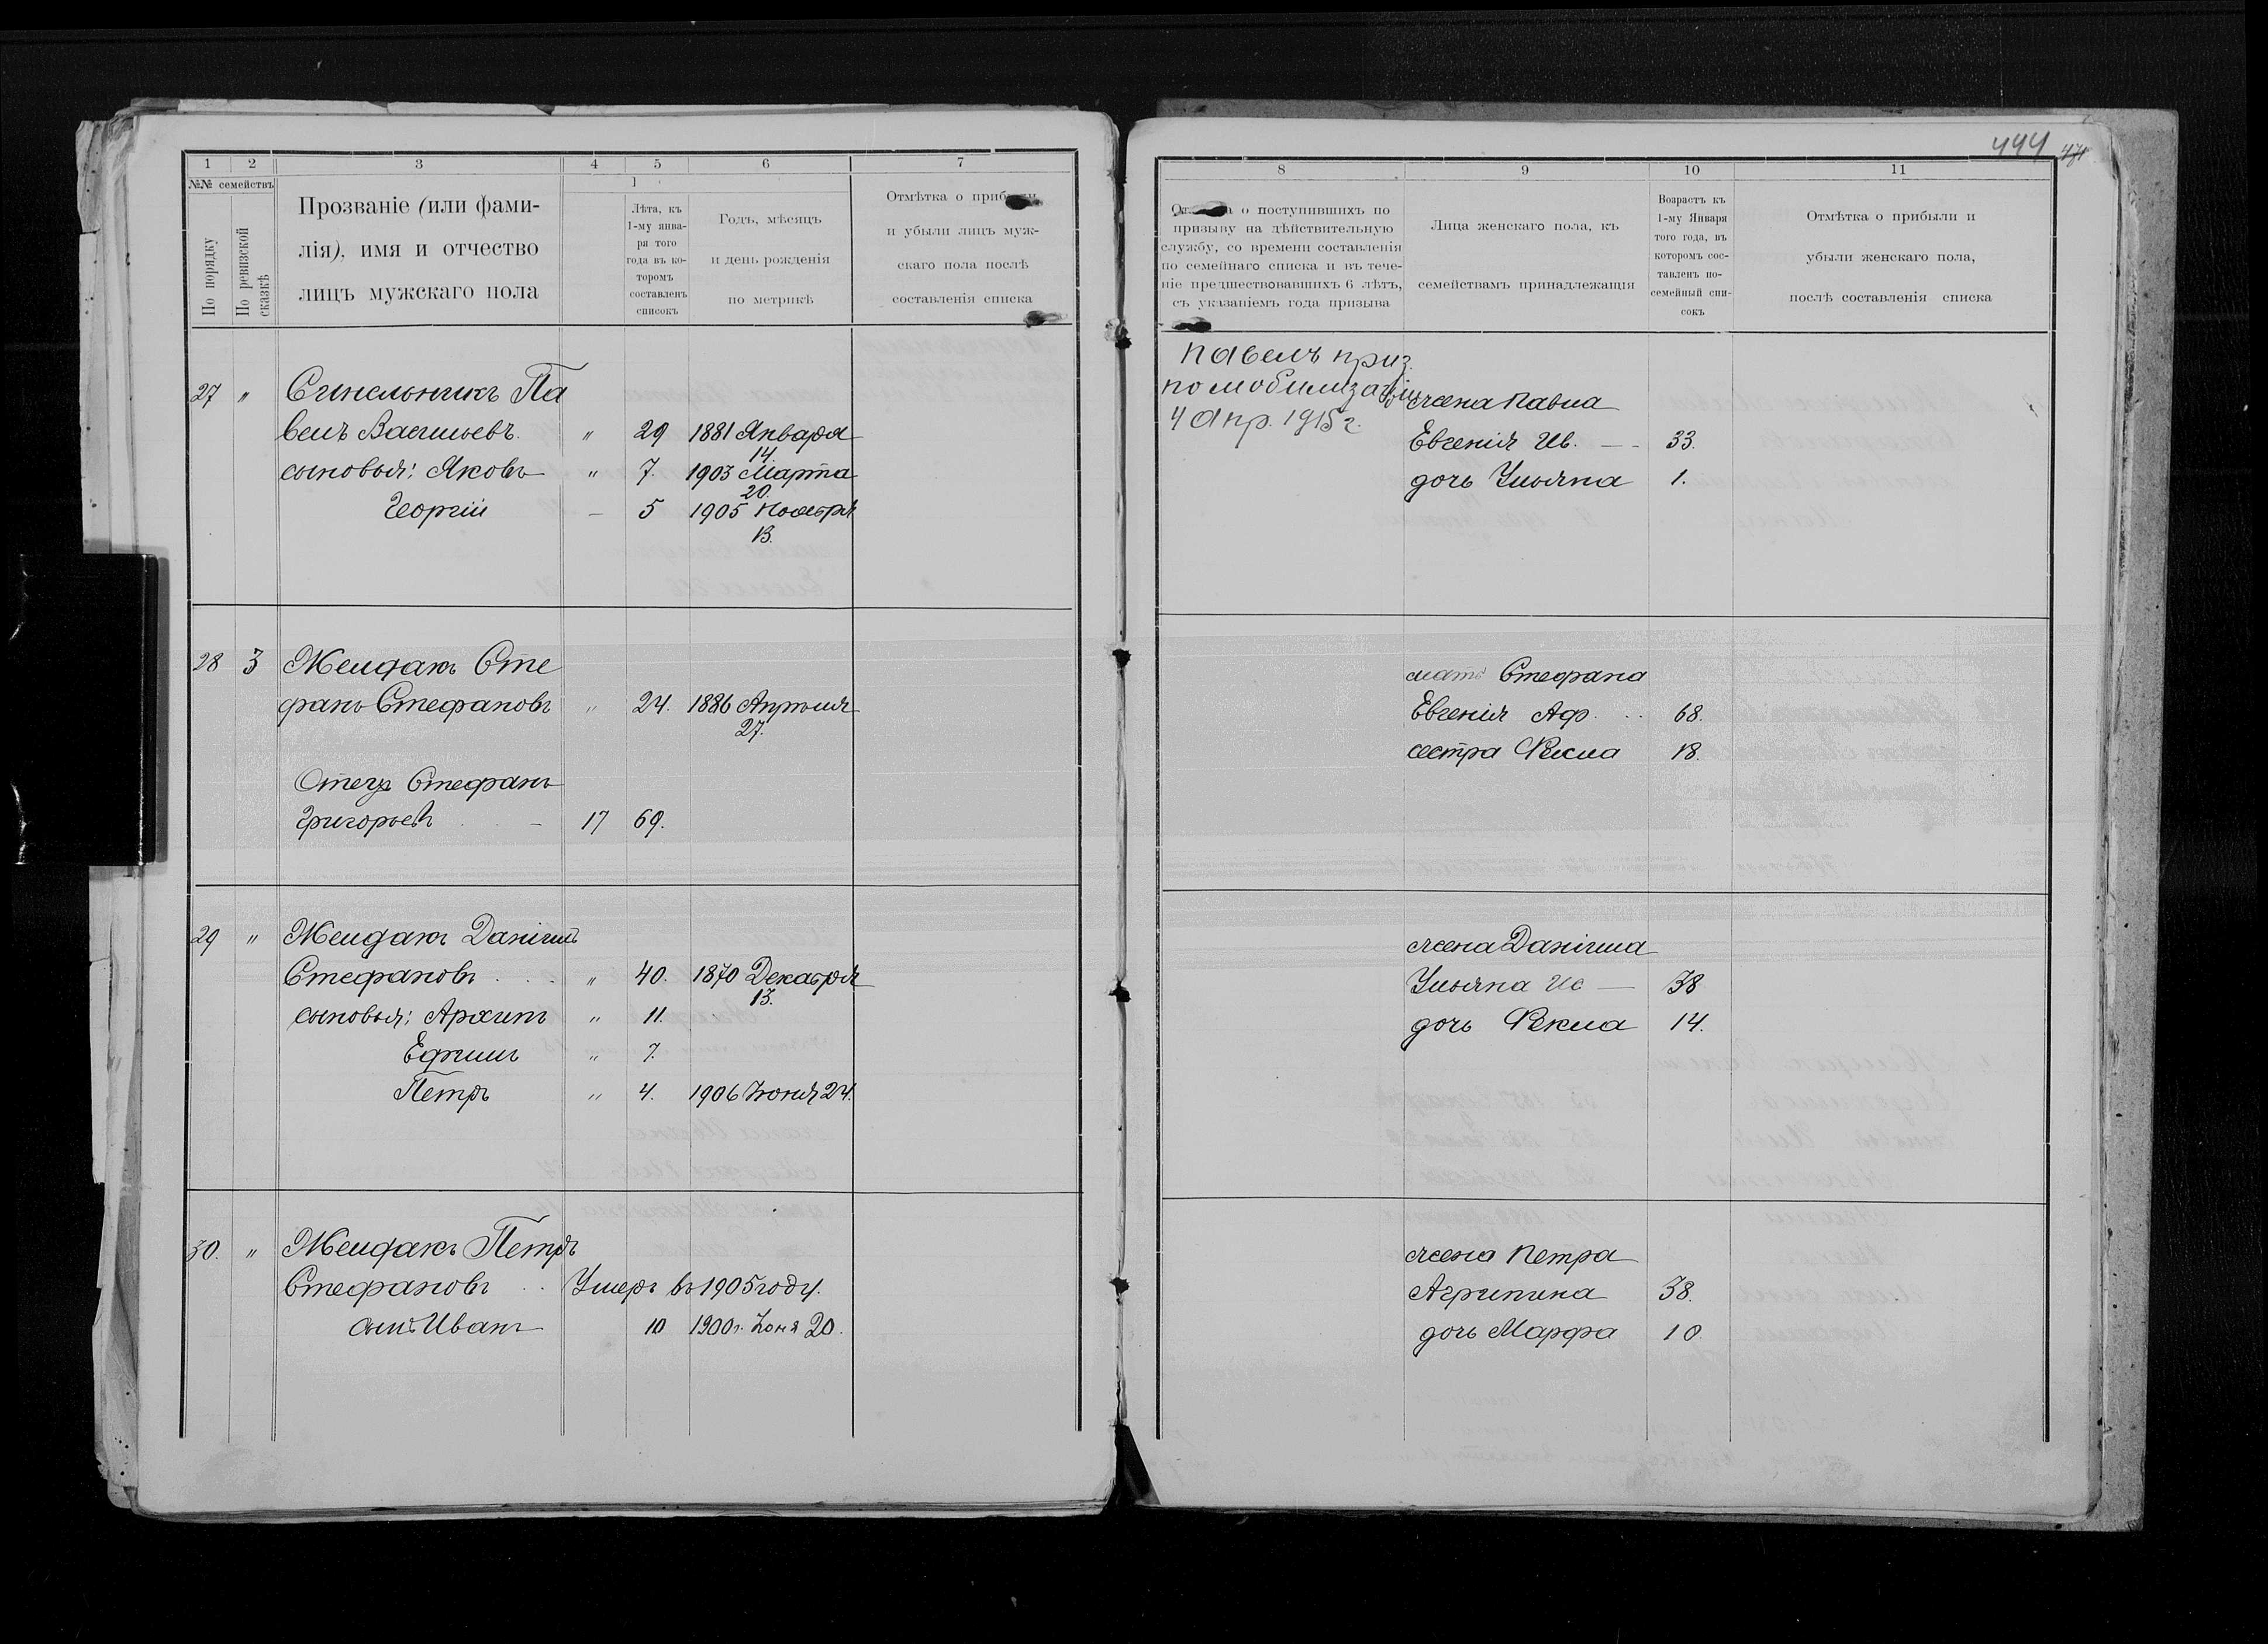 1 2 3 4 5 6 7
№№ семействъ
По порядку
По ревизской сказкѣ
Прозваніе (или фами-
лія), имя и отчество
лицъ мужскаго пола
1
Лѣта, къ
1-му янва-
ря того
года въ ко-
торомъ
составленъ
списокъ
Годъ, мѣсяцъ
и день рожденія
по метрикѣ
Отмѣтка о прибыли
и убыли лицъ муж-
скаго пола послѣ
составленія списка
27 " Синельникъ Па
велъ Васильевъ. " 29 1881 Января
14.
сыновья: Яковъ " 7. 1903 Марта
20.
Георгій – 5 1905 Ноября
13.
28 3 Желдакъ Сте
фанъ Стефановъ " 24. 1886 Апрѣля
27.
Отецъ Стефанъ
Григорьевъ – 17 69.
29 " Желдакъ Даніилъ
Стефановъ . . . " 40. 1870 Декабря
13.
сыновья: Архипъ " 11.
Ефимъ " 7.
Петръ " 4. 1906 Іюня 24.
30. " Желдакъ Петръ
Стефановъ . . Умеръ въ 1905 году.
сынъ Иванъ 10 1900 г. Іюня 20.
444 471
8 9 10 11
о поступившихъ по
призыву на дѣйствительную
службу, со времени составленія
по семейнаго списка и въ тече-
ніе предшествовавшихъ 6 лѣтъ,
съ указаніемъ года призыва
Лица женскаго пола, къ
семействамъ принадлежащія
Возрастъ къ
1-му Января
того года, въ
которомъ сос-
тавленъ по-
семейный спи-
сокъ
Отмѣтка о прибыли и
убыли женскаго пола,
послѣ составленія списка
Павелъ приз.
по мобилизаціи
4 Апр. 1915 г.
жена Павла
Евгенія Ив. – – 33.
дочь Ульяна 1.
мать Стефана
Евгенія Аф. . . 68.
сестра Фекла 18.
жена Даніила
Ульяна Ис – 38
дочь Фекла 14.
жена Петра
Агрипина 38.
дочь Марфа 10.